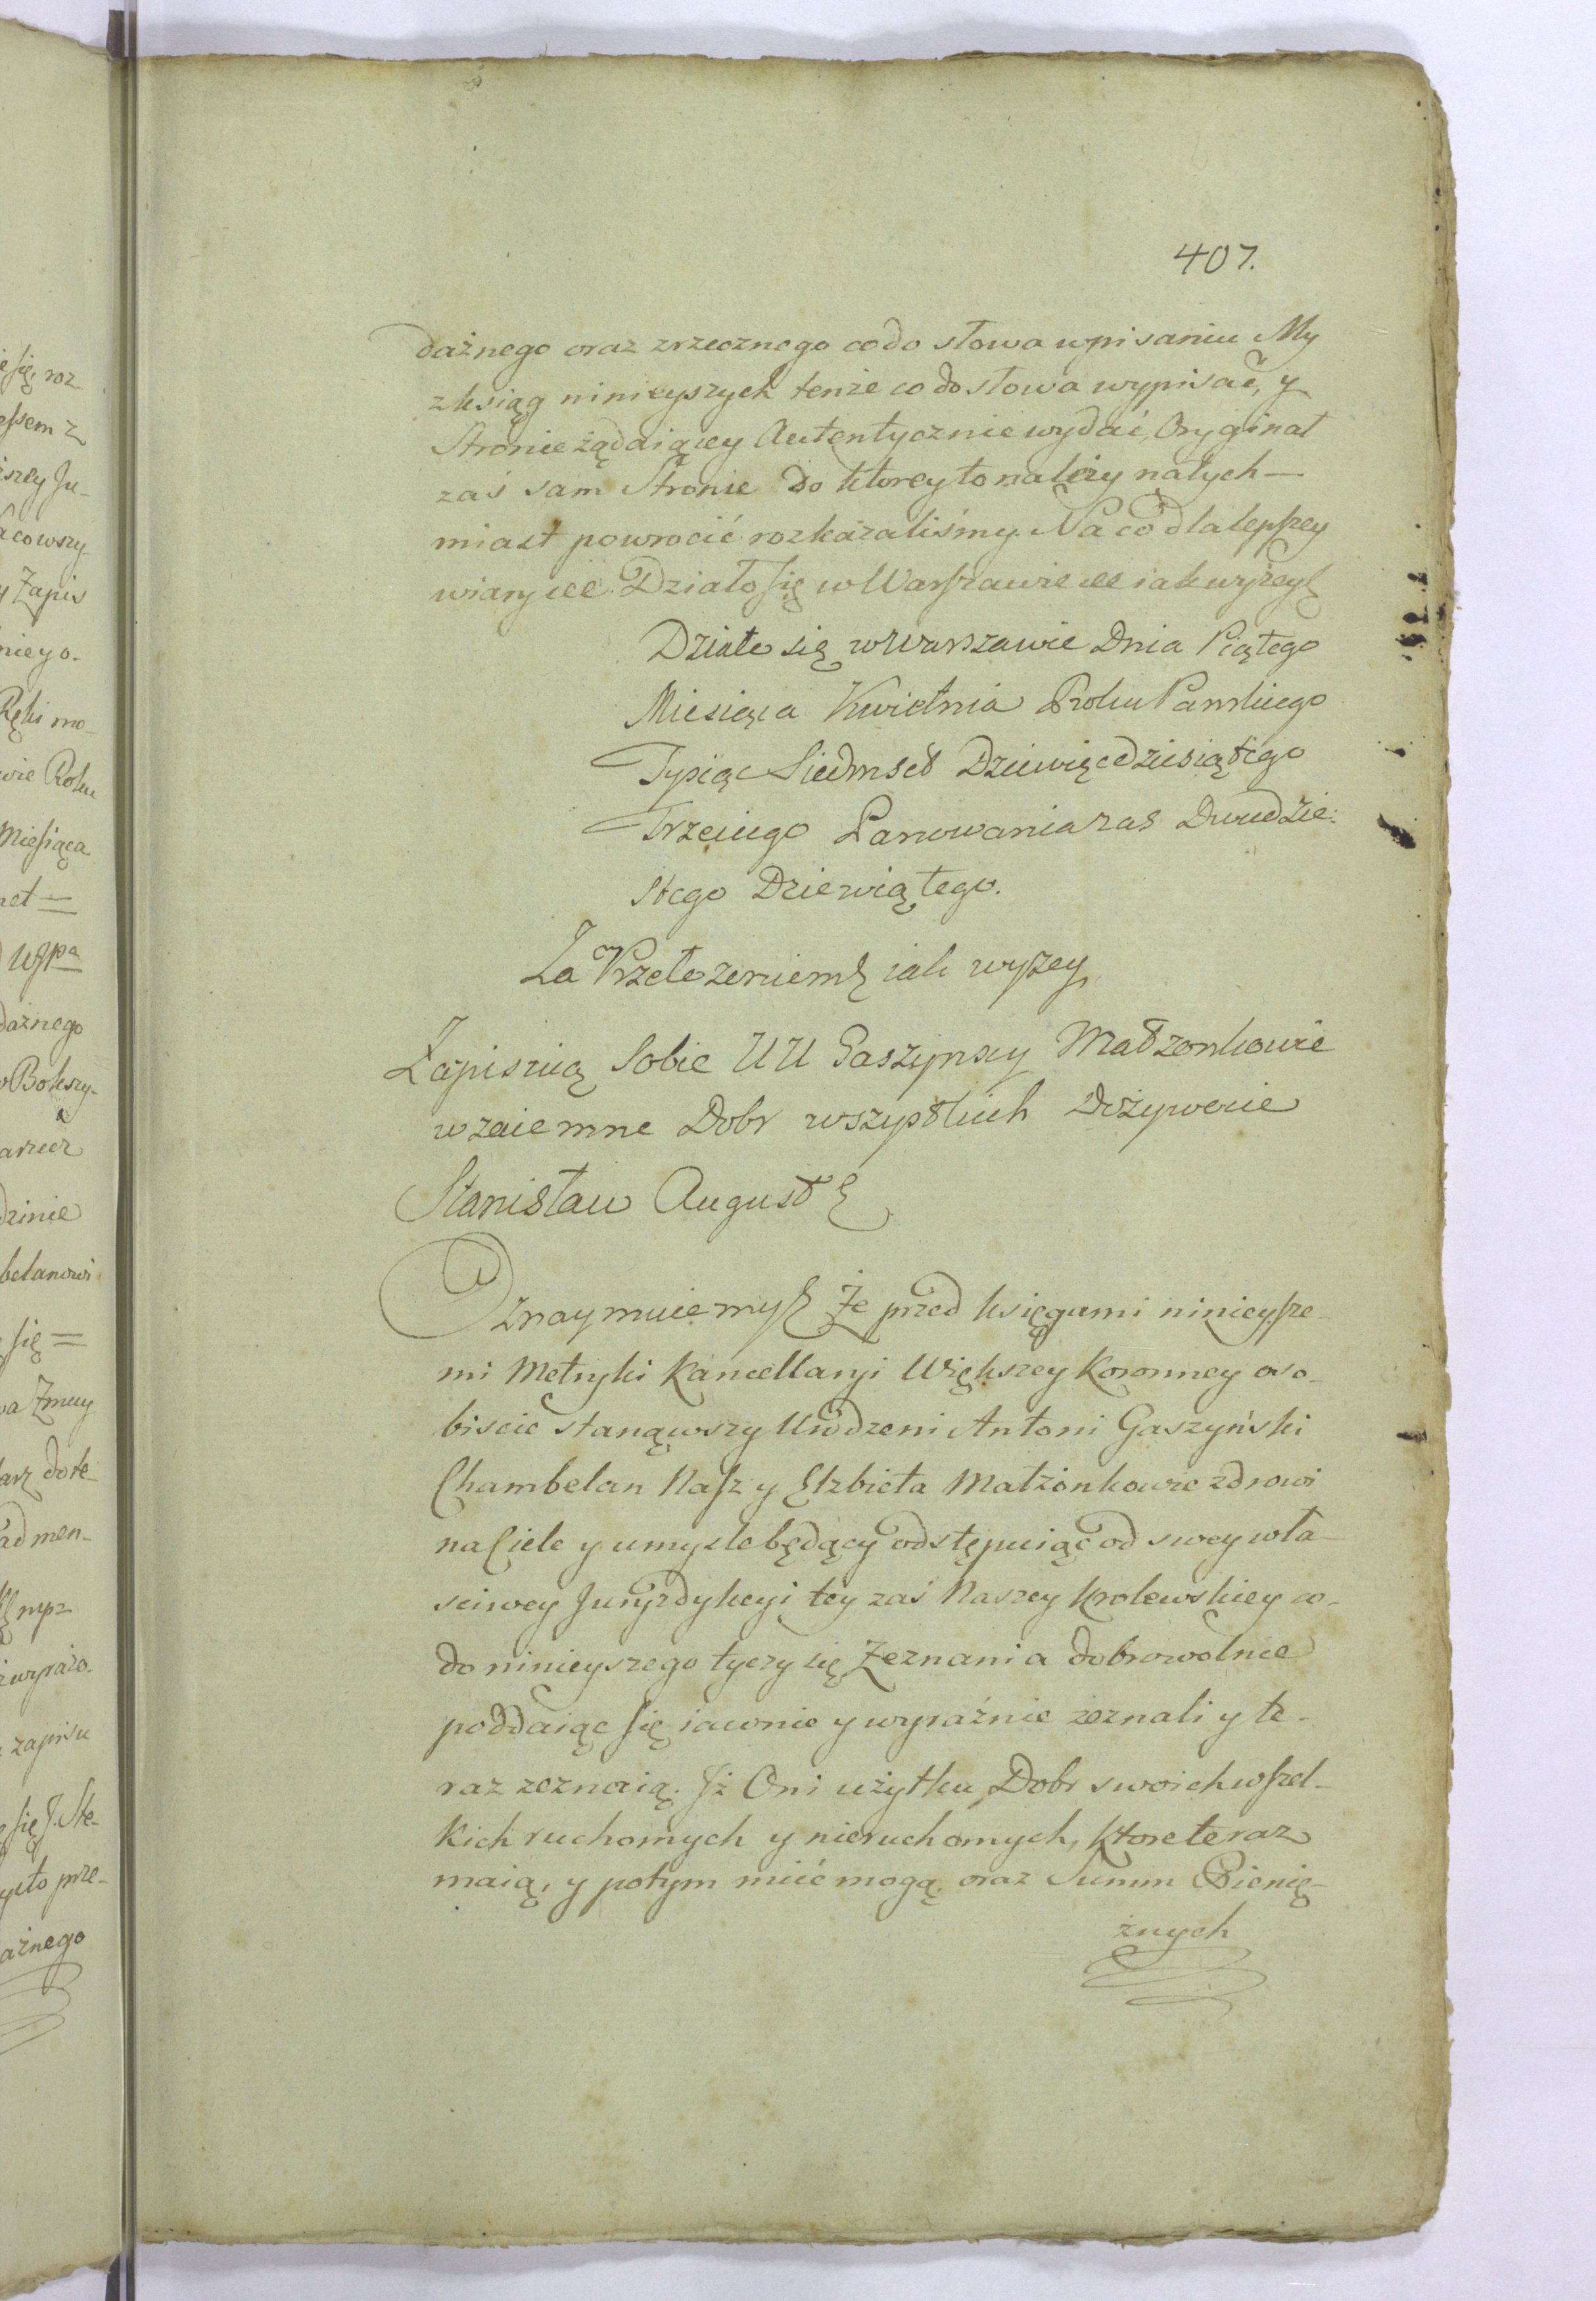 407.
dażnego oraz zrzecznego codo słowa wpisaniu My
z ksiąg ninieyszych tenże co do słowa wypisać, y
Stronie żądaiącey Autentycznie wydać, Oryginał
zaś sam Stronie do ktorey to należy natych-
miast powrocić rozkazaliśmy. Na co dla lepszey
wiary etc. Działo się w Warszawie etc iak wyżey
Działo się w Warszawie Dnia Piątego
Miesiąca Kwietnia Roku Pańskiego
Tysiąc Siedmset Dziewięćdziesiątego
Trzeciego Panowania zas Dwudzie:
stego Dziewiątego.
Za Przełożeniem iak wyżey
Zapisuią Sobie UU Gaszynscy Małżonkowie
wzaiemne Dobr wszystkich Dożywocie
Stanisław August
Oznaymuiemy Że przed księgami ninieysze-
mi Metryki Kancellaryi Większey Koronney oso-
biscie stanąwszy Urodzeni Antoni Gaszyński
Chambelan Nasz y Elżbieta Małżonkowie zdrowi
na Ciele y umysle będący odstępuiąc od swey wła-
sciwey Juryzdykcyi tey zaś Naszey Krolewskiey co-
do ninieyszego tyczy się Zeznania dobrowolnie
poddaiąc się iawnie y wyraźnie zeznali y te-
raz zeznaią. Iż Oni użytku Dobr swoich wszel-
kich ruchomych y nieruchomych, ktore teraz
maią, y potym mieć mogą. oraz Summ Pienię-
żnych